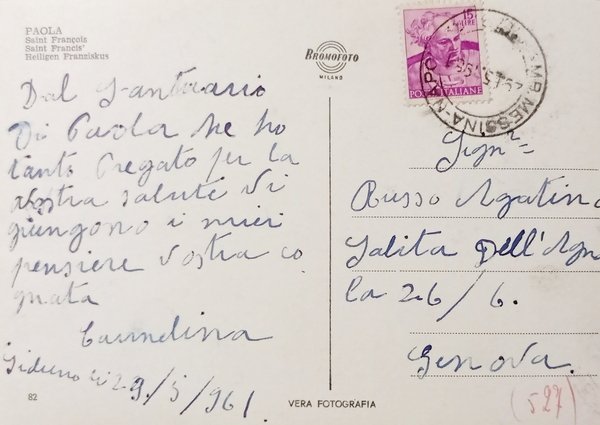 PAOLA
Saint François
Saint Francis'
Heiligen Franziskus
BROMOFOTO
MILANO
15 LIRE
POSTE ITALIANE
MESSINA-NAPO
Dal Santuario
Di Paola he ho
tanto Pregato per la
vostra salute vi
giungono i miei
pensiere Vostra co
gnata
Carmelina
Siderno li 29/5/961
Sign ra
Russo Agatina
Salita Dell'Aqu
la 26/6.
Genova.
(527)
82
VERA FOTOGRAFIA